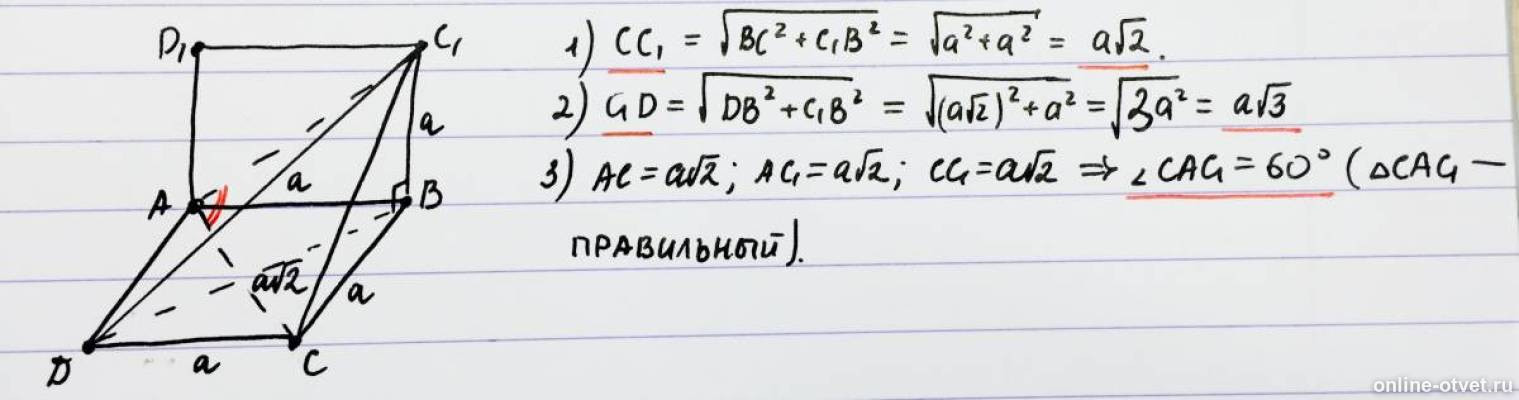 D₁
C₁
a
a
A
B
a√2
a
D
a
C
1) CC₁ = √BC² + C₁B² = √a² + a² = a√2.
2) C₁D = √DB² + C₁B² = √(a√2)² + a² = √3a² = a√3
3) AC = a√2; AC₁ = a√2; CC₁ = a√2 ⇒ ∠CAC₁ = 60° (△CAC₁ —
ПРАВИЛЬНЫЙ).
online-otvet.ru